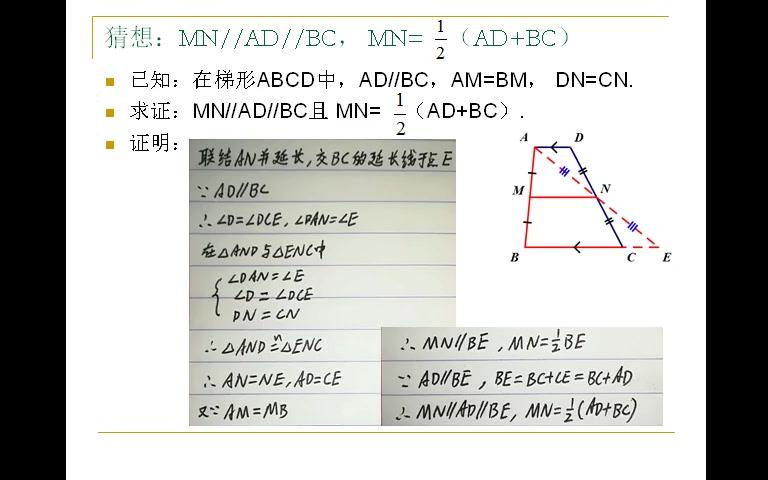 猜想：MN//AD//BC， MN= 1/2（AD+BC）
已知：在梯形ABCD中，AD//BC，AM=BM， DN=CN.
求证：MN//AD//BC且 MN= 1/2（AD+BC）.
证明：
联结AN并延长，交BC的延长线于点E
∵ AD∥BC
∴ ∠D=∠DCE，∠DAN=∠E
在△AND与△ENC中
∠DAN=∠E
∠D=∠DCE
DN=CN
∴ △AND≌△ENC
∴ AN=NE，AD=CE
又∵ AM=MB
∴ MN∥BE，MN=1/2BE
∵ AD∥BE，BE=BC+CE=BC+AD
∴ MN∥AD∥BE，MN=1/2(AD+BC)
A D
M N
B C E